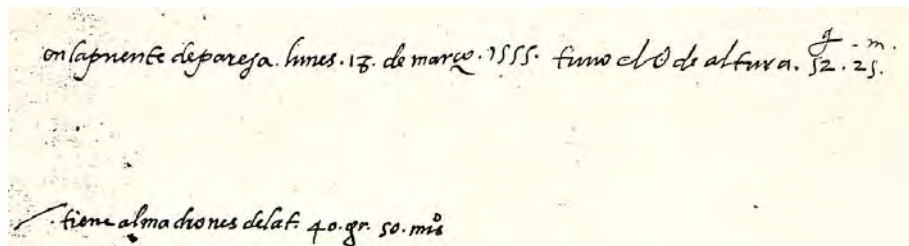 g. m.
en lapuente depareja. lunes. 18. de março. 1555. tuuo el ☉ de altura. 52. 25.
tiene almadrones delat. 40. gr. 50. miºs